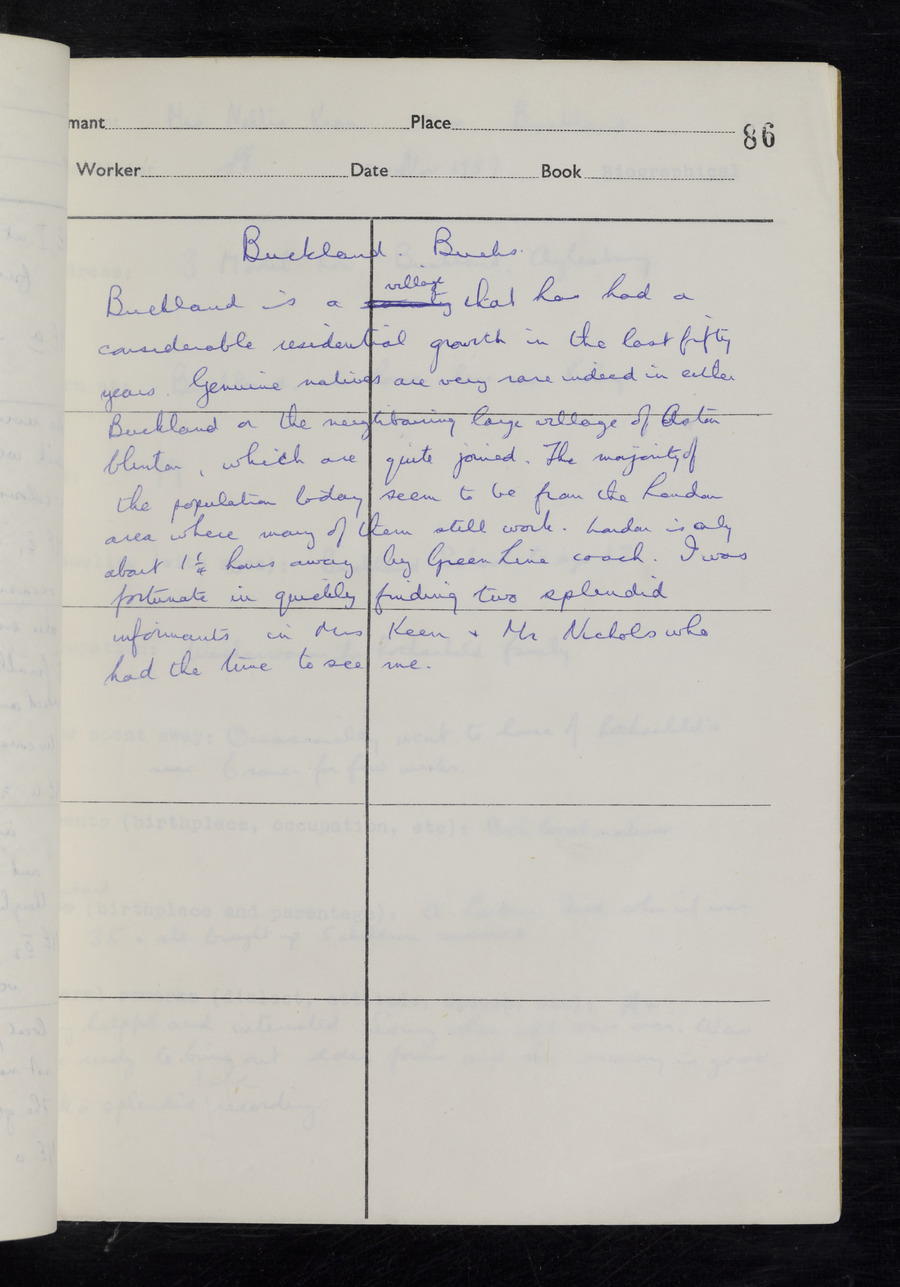 mant Place 86
Worker Date Book
Buckland. Bucks.
village
Buckland is a county that has had a
considerable residential growth in the last fifty
years. Genuine natives are very rare indeed in either
Buckland or the neighbouring large village of Aston
Clinton, which are quite joined. The majority of
the population today seem to be from the London
area where many of them still work. London is only
about 1¼ hours away by Green Line coach. I was
fortunate in quickly finding two splendid
informants in Mrs Keen + Mr Nichols who
had the time to see me.